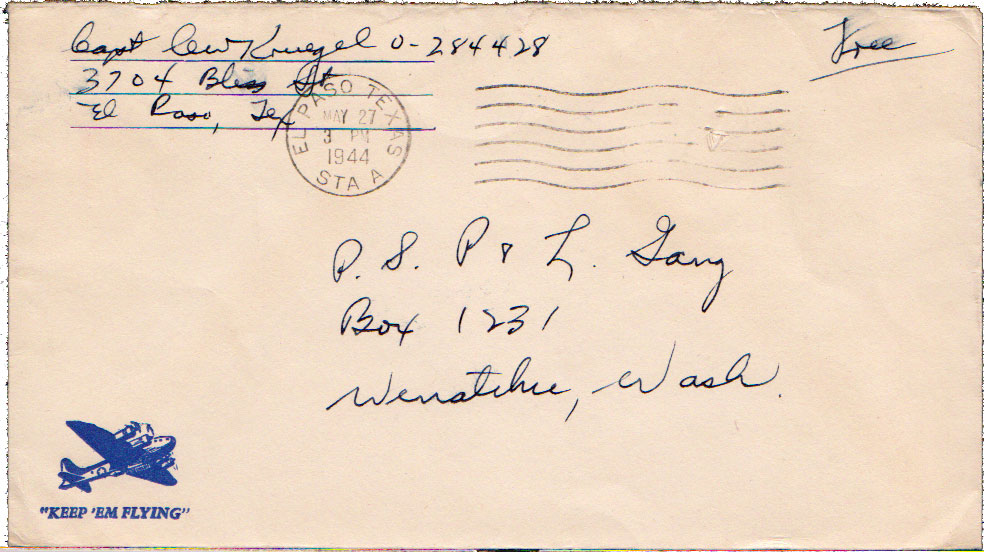 Capt Cew Kruegel 0-284428
Free
3704 Bliss St
El Paso, Tex
EL PASO TEXAS
MAY 27
3 PM
1944
STA A
P. S. P & L. Gang
Box 1231
Wenatchee, Wash.
"KEEP 'EM FLYING"